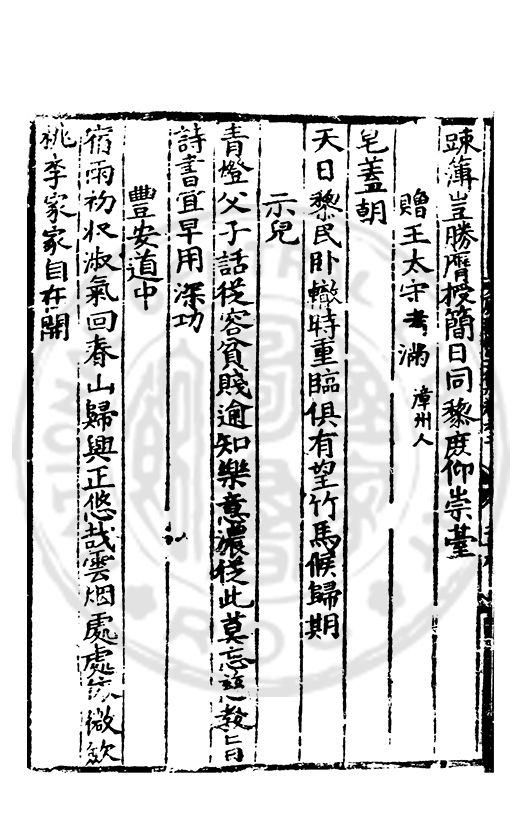 踈簿豈勝膺授簡日同黎庶仰崇臺
贈王太守考滿 漳州人
皂蓋朝
天日黎民卧轍時重臨俱有望竹馬候歸期
示兒
青燈父子話從容貧賤逾知樂意濃從此莫忘慈教旨
詩書宜早用深功
豐安道中
宿雨初收淑氣回春山歸興正悠哉雲烟處處徐微歛
桃李家家自在開